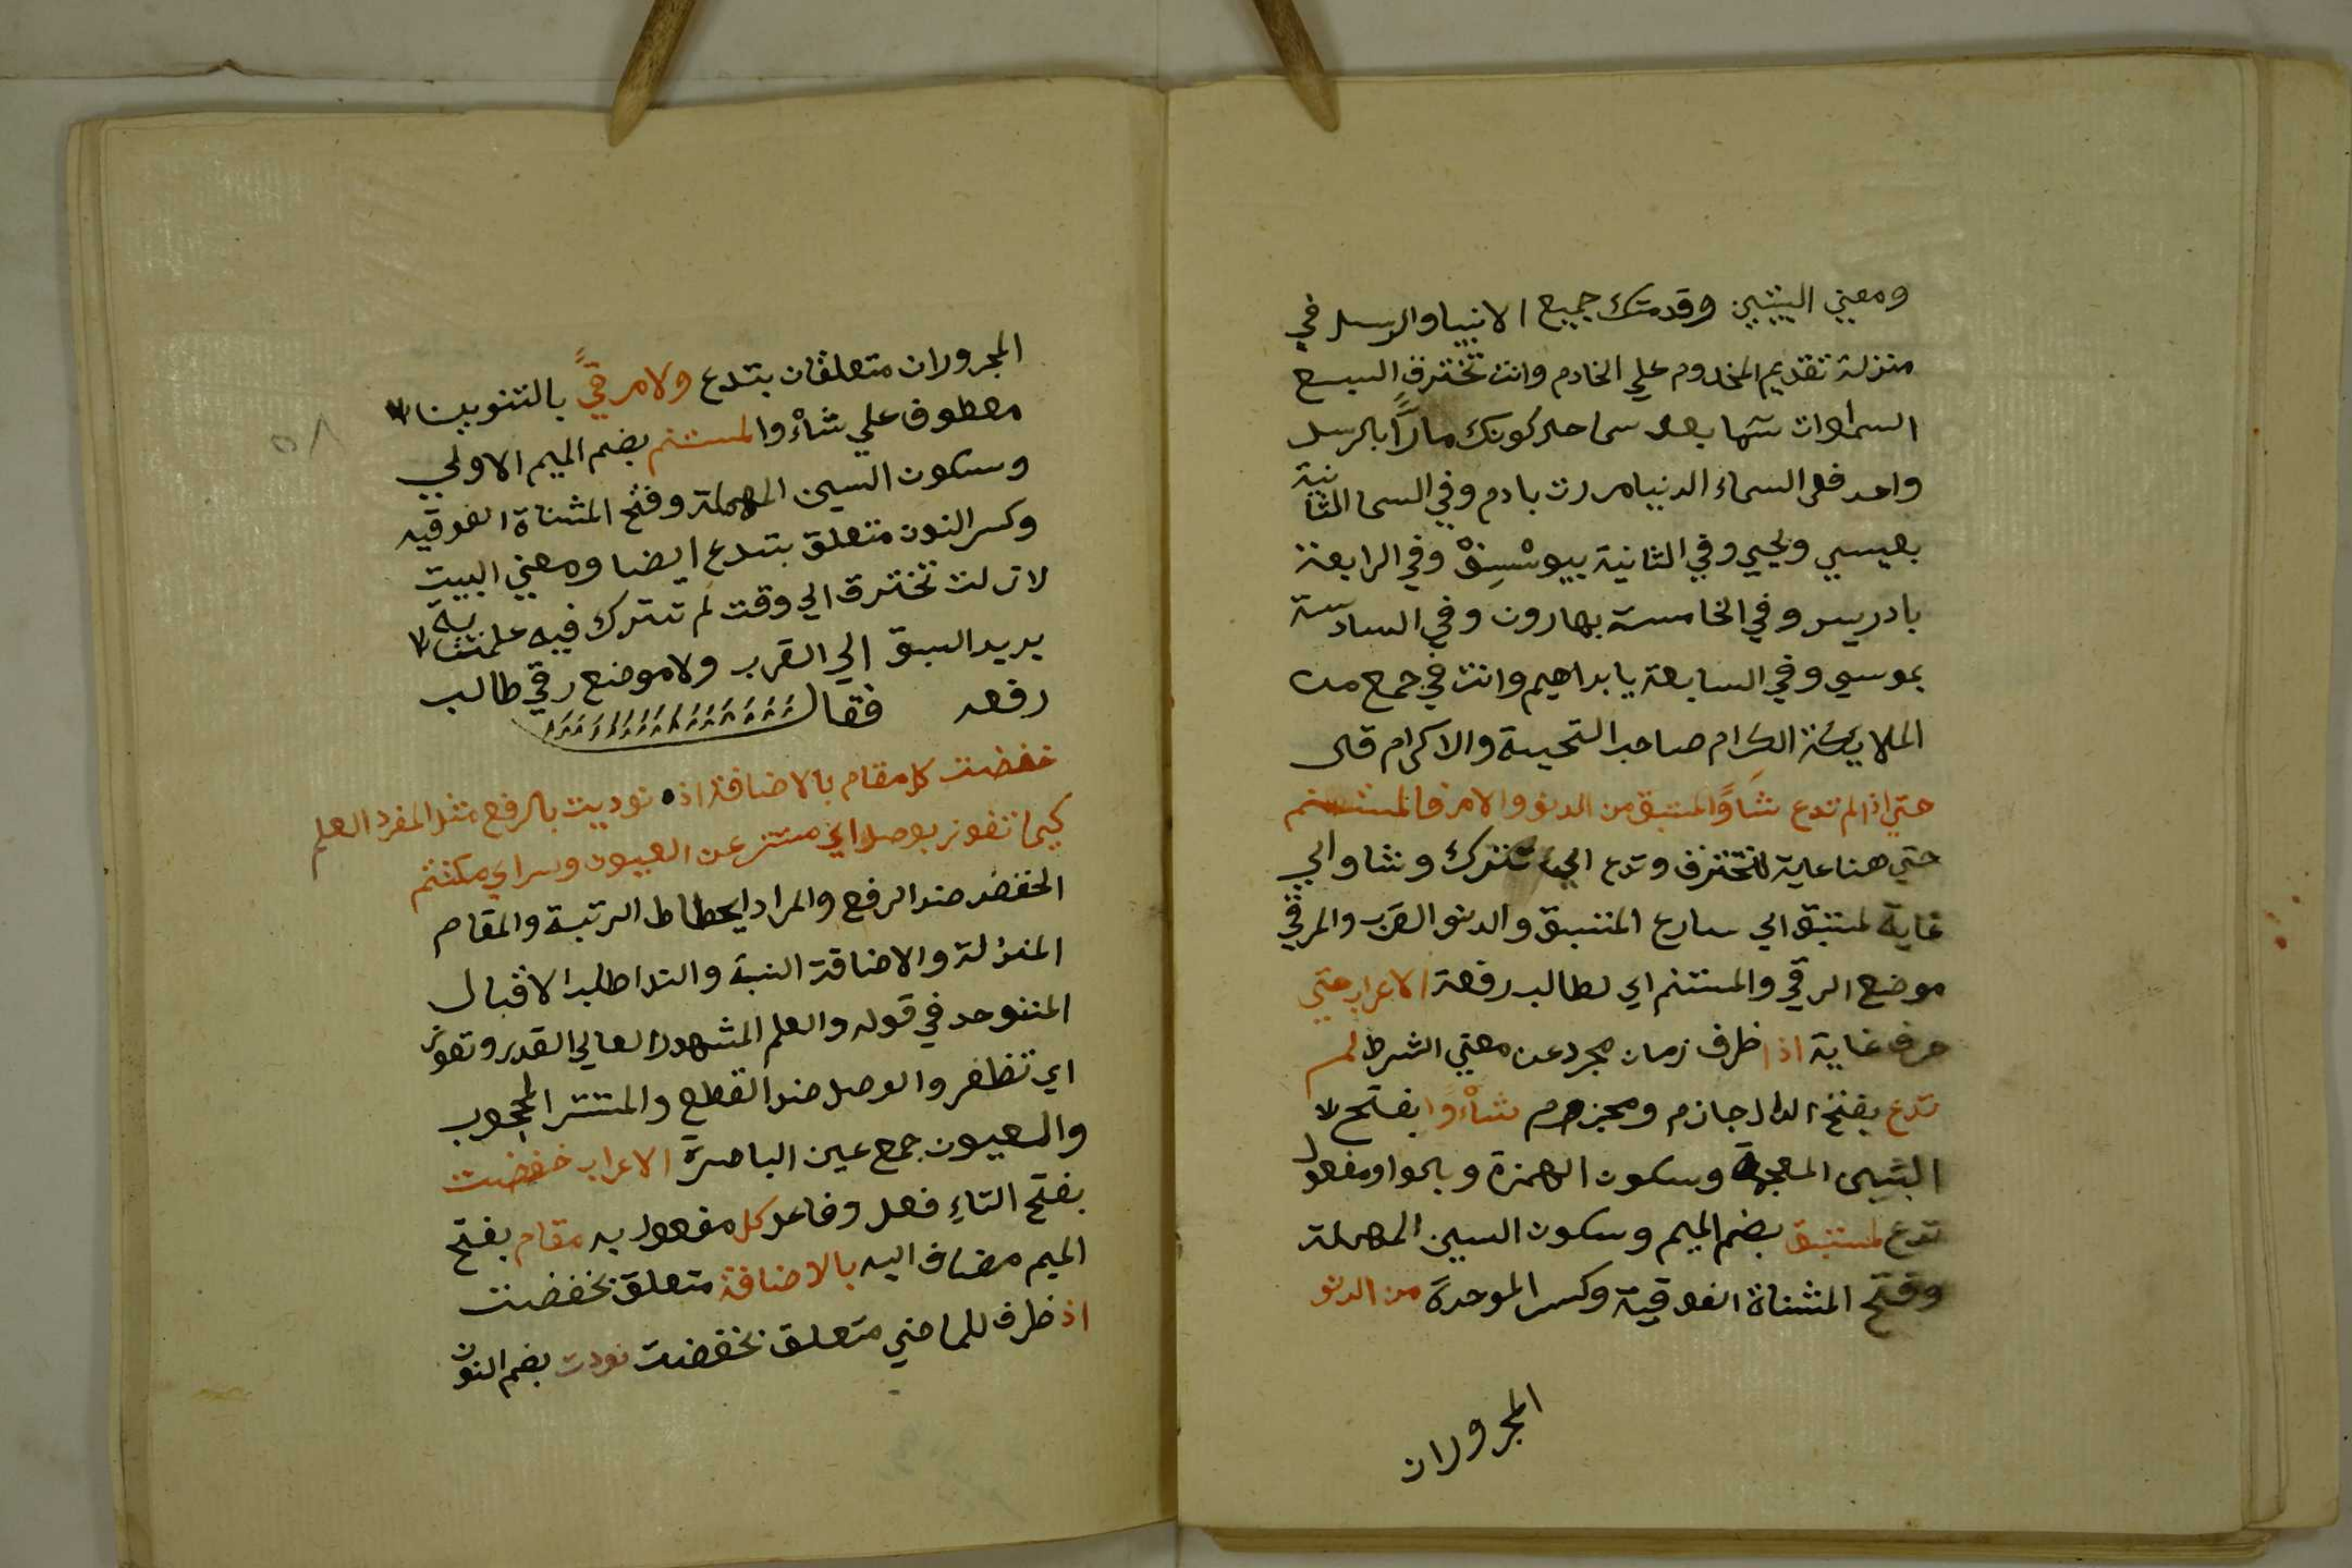 ومعني البيتين وقدمتك جميع الانبيا والرسل في
منزلة تقديم المخدوم علي الخادم وانت تخترق السبع
السماوات سما بعد سما حال كونك مارًّا بالرسل
واحد ففي السماء الدنيا مررت بادم وفي السما الثانية
بعيسي ويحيي وفي الثانية بيوسف وفي الرابعة
بادريس وفي الخامسة بهارون وفي السادسة
بموسي وفي السابعة يابداهيم وانت في جمع من
الملايكة الكرام صاحب التحية والاكرام قال
حتي اذا لم تدع شأوًا لمستبق من الدنو ولا مرقا لمستنم
حتي هنا غاية لتخترق وتدع اي تترك وشاو اي
غاية لمستبق اي سارع المستبق والدنو القرب والمرقي
موضع الرقي والمستنم اي لطالب رفعة الاعراب حتي
حرف غاية اذا ظرف زمان مجرد عن معني الشرط لم
تدع بفتح الدال جازم ومجزوم شأوًا بفتح
الشين المعجمة وسكون الهمزة وبالواو مفعول
تدع لمستبق بضم الميم وسكون السين المهملة
وفتح المثناة الفوقية وكسر الموحدة من الدنو
المجروران
المجروران متعلقان بتدع ولا مرقيً بالتنوين
معطوف علي شأو والمستنم بضم الميم الاولي
وسكون السين المهملة وفتح المثناة الفوقيه
وكسر النون متعلق بتدع ايضا ومعني البيت
لا زلت تخترق الي وقت لم تترك فيه غاية
يريد السبق الي القرب ولا موضع رقي طالب
رفعه فقال
خفضت كل مقام بالاضافة اذ نوديت بالرفع مثل المفرد العلم
كيما تفوز بوصل اي مستتر عن العيون وسر اي مكتتم
الخفض ضد الرفع والمراد ايحطاط الرتبة والمقام
المنزلة والاضافة النسبة والندا طلب الاقبال
المتوحد في قوله والعلم المشهور العالي القدر وتفوز
اي تظفر والوصل ضد القطع والمستتر المحجوب
والعيون جمع عين الباصرة الاعراب خفضت
بفتح التاءِ فعل وفاعل كل مفعول به مقام بفتح
الميم مضاف اليه بالاضافة متعلق بخفضت
اذ ظرف للماضي متعلق بخفضت نودت بضم النون